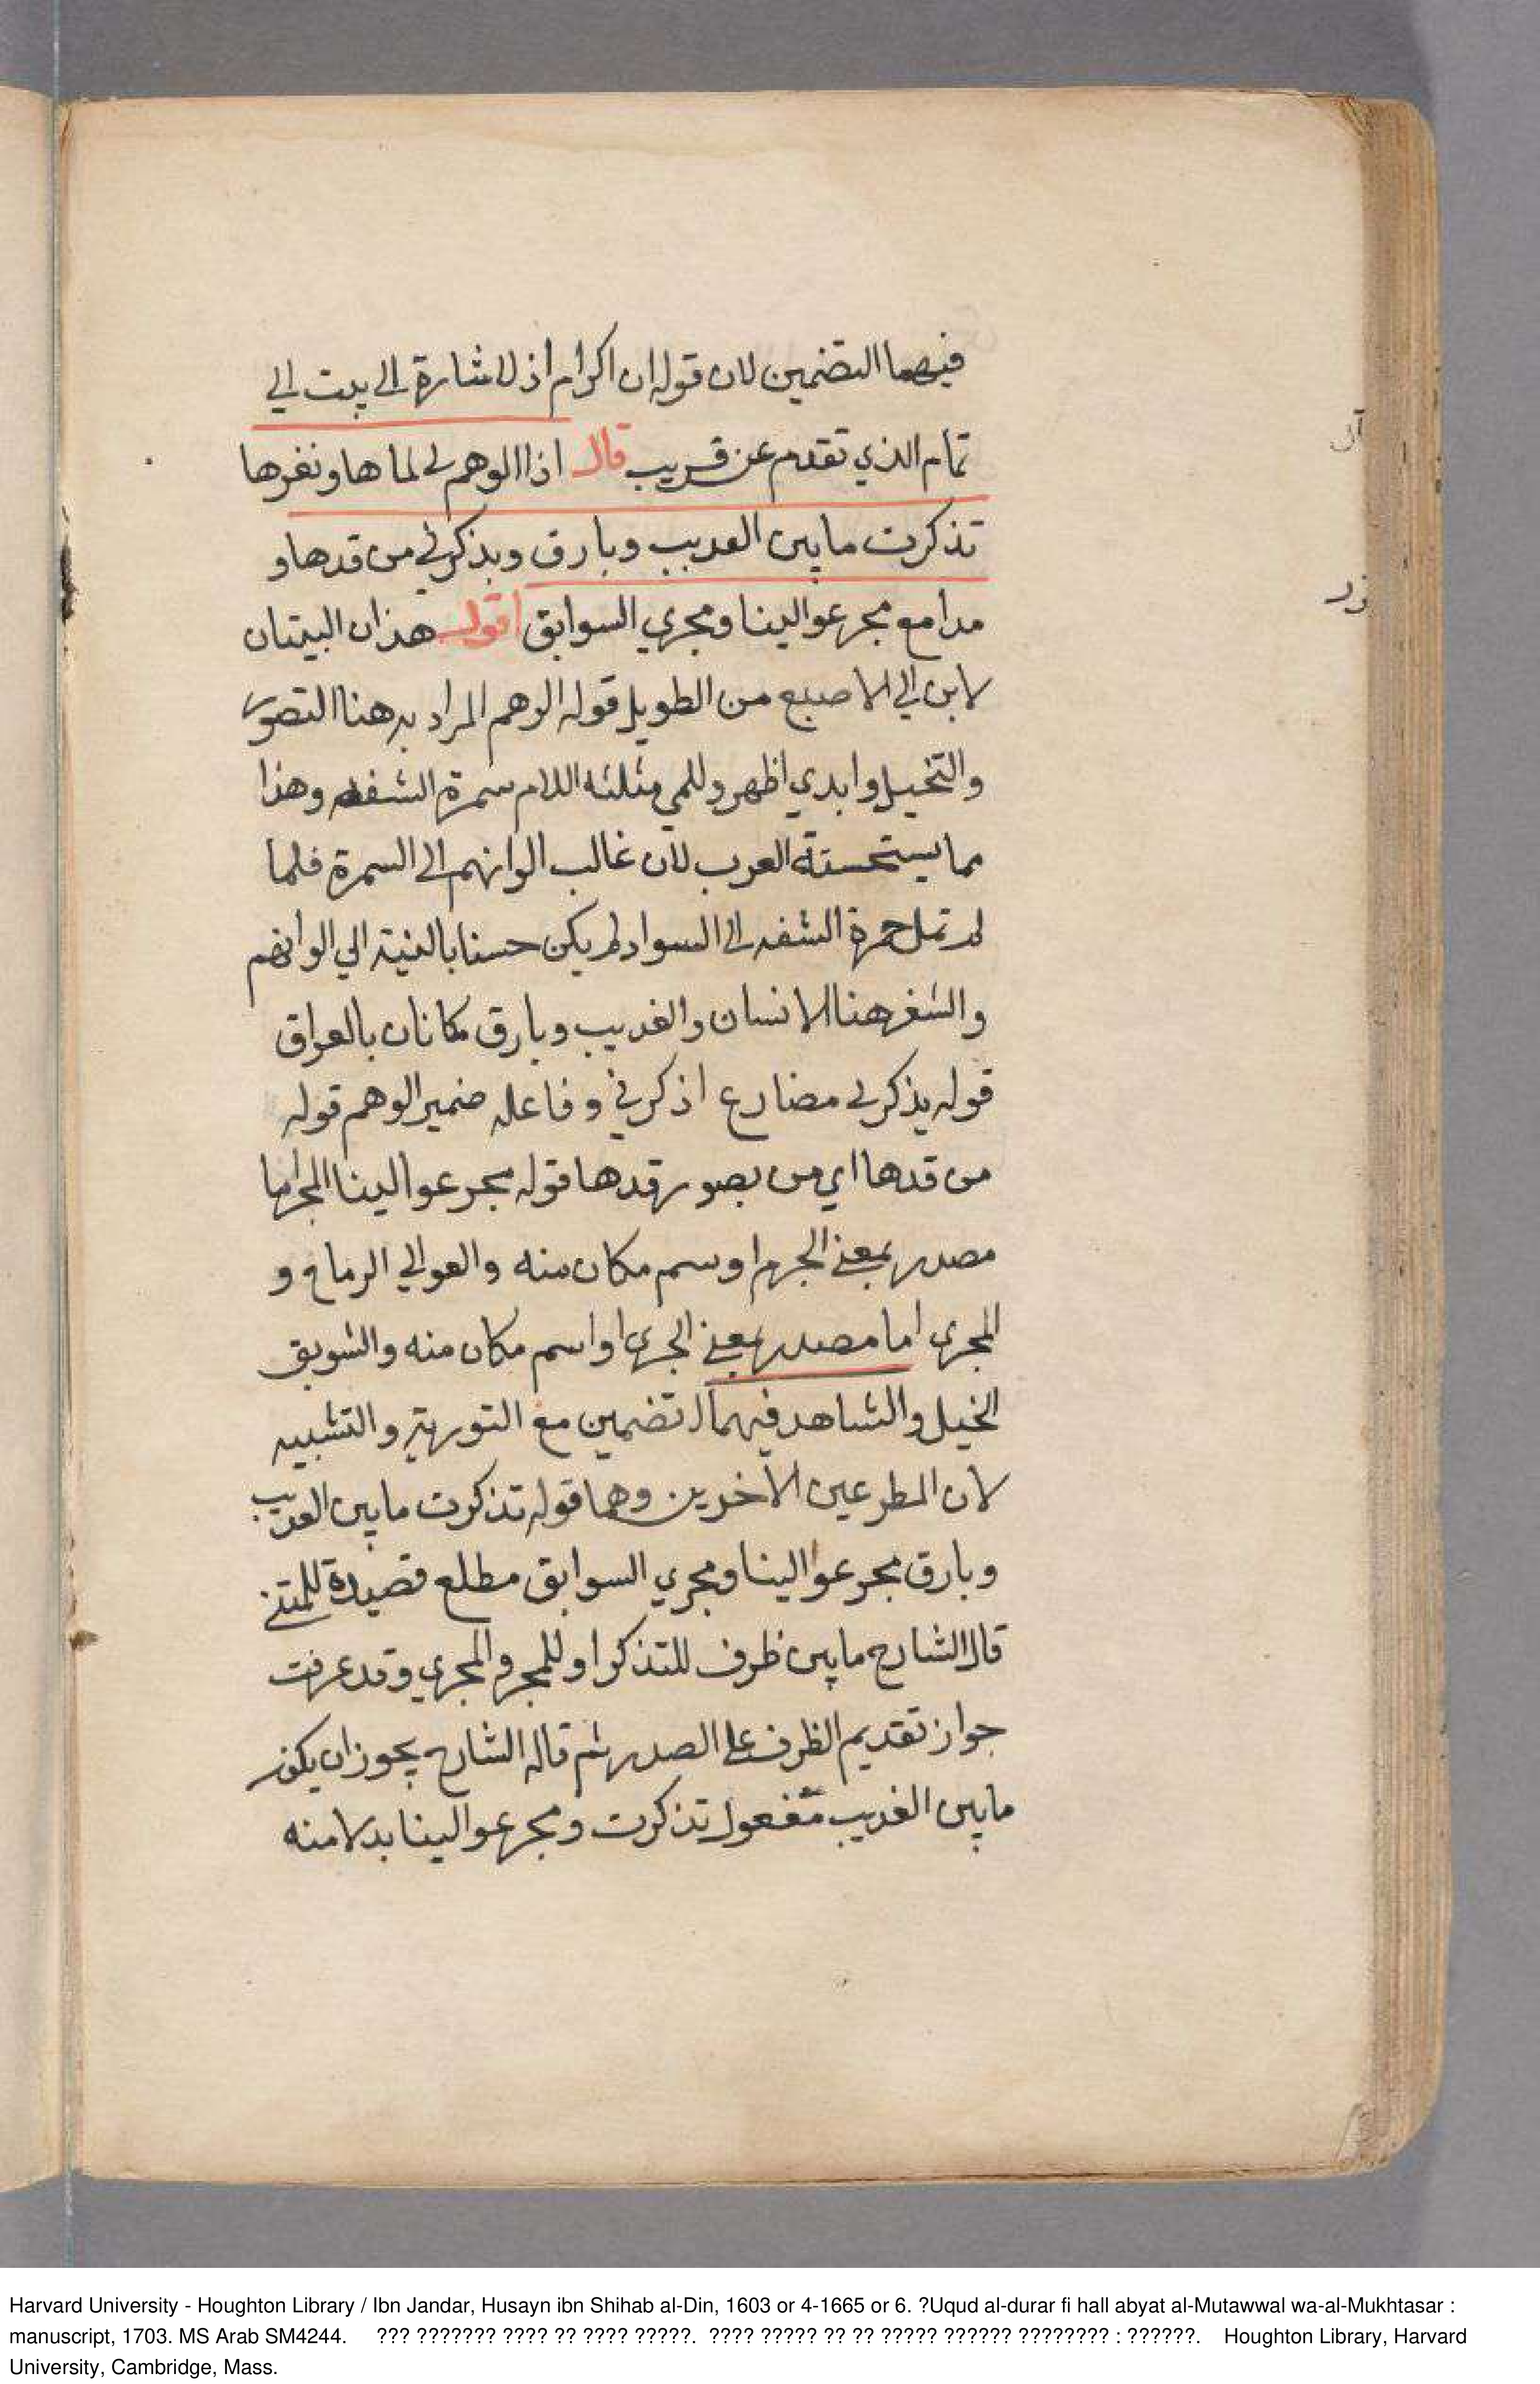 فيهما التضمين لان قوله ان اكرام اذ لاشارة الى بيت ابي
تمام الذي تقدم عن قريب قال اذا الوهم لى لماها و نغرها
تذكرت ما بين العديب وبارق ويذكرني من قدها و
مدامع مجر عوالينا ومجري السوابق اقول هذان البيتان
لابن ابي الاصبع من الطويل قوله الوهم المراد به هنا التصور
والتخيل وابدي اظهر وللمي مثلثه اللام سمرة الشفه وهذا
مما يستحسنه العرب لان غالب الوانهم الى السمرة فلما
لم تمل حمرة الشفه الى السواد لم يكن حسنا بالنسبة الي الوانهم
والشغر هنا الانسان والغديب وبارق مكانان بالعراق
قوله يذكرني مضارع اذكرني و فاعله ضمير الوهم قوله
من قدها اي من بصور قدها قوله مجر عوالينا المجر اما
مصدر بمعنى الجر او سم مكان منه والعوالي الرماح و
المجرى اما مصدر بمعنى الجرى او اسم مكان منه والسوبق
الخيل والشاهد فيهما ل تضمين مع التورية والتشبيه
لان المطرعين الاخرين وهما قوله تذكرت ما بين العديب
وبارق مجر عوالينا ومجري السوابق مطلع قصيدة للمتنى
قال الشارح ما بين ظرف للتذكر او للمجر والمجري وقد عرفت
جواز تقديم الظرف على الصدر ثم قاله الشارح يجوز ان يكون
ما بين الغديب مفعول تذكرت ومجر عوالينا بدلا منه
Harvard University - Houghton Library / Ibn Jandar, Husayn ibn Shihab al-Din, 1603 or 4-1665 or 6. ?Uqud al-durar fi hall abyat al-Mutawwal wa-al-Mukhtasar :
manuscript, 1703. MS Arab SM4244. ??? ??????? ???? ?? ???? ?????. ???? ????? ?? ?? ????? ?????? ???????? : ??????. Houghton Library, Harvard
University, Cambridge, Mass.